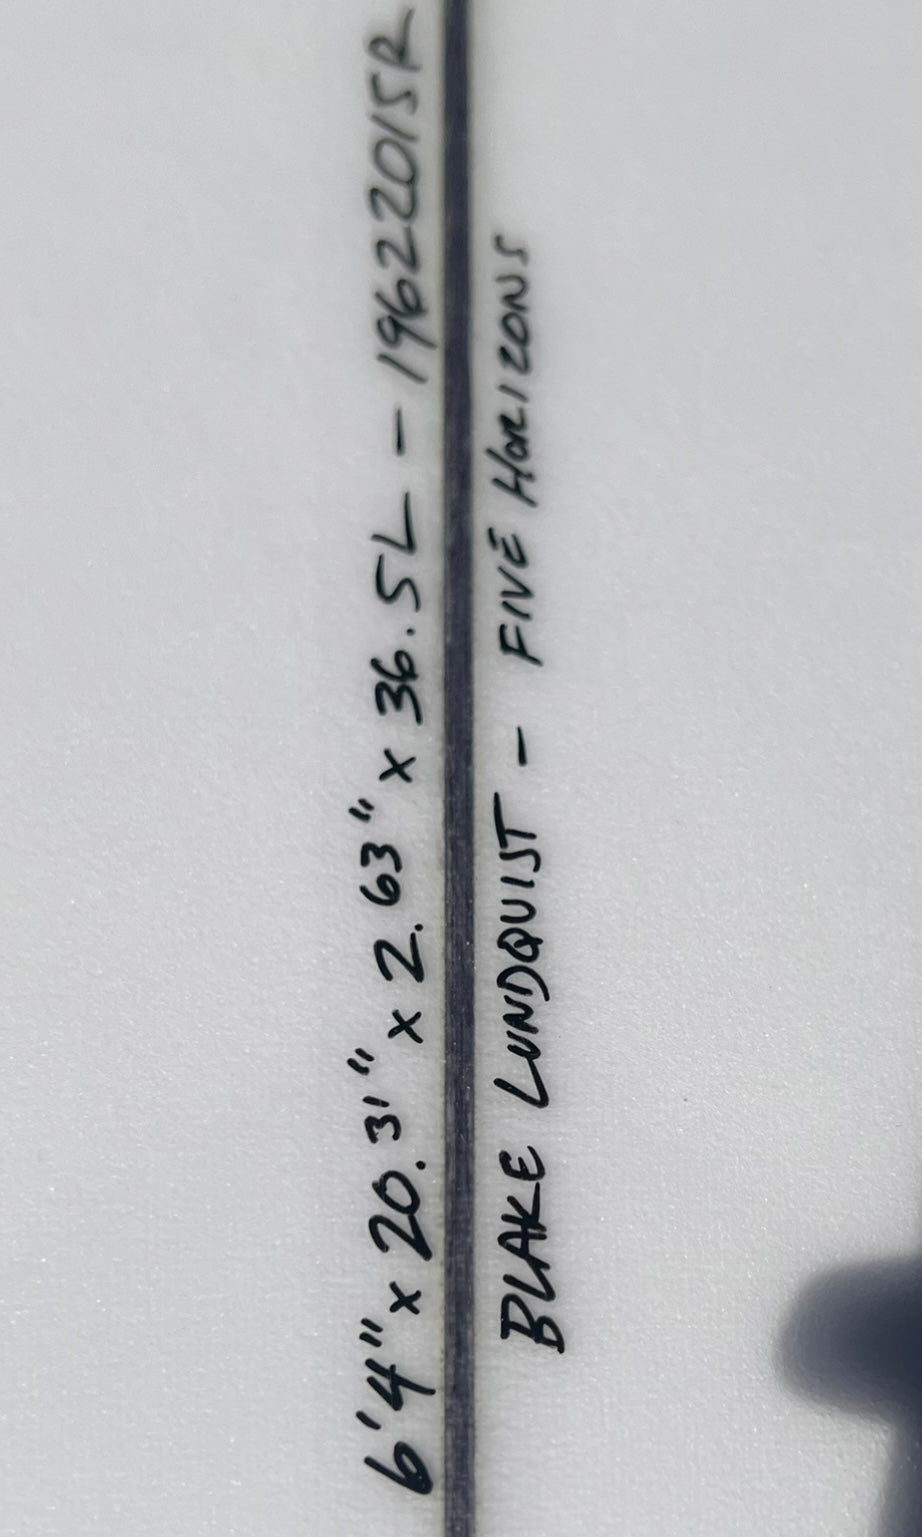 6'4" x 20.31" x 2.63" x 36.5L - 19622015R
BLAKE LUNDQUIST - FIVE HORIZONS